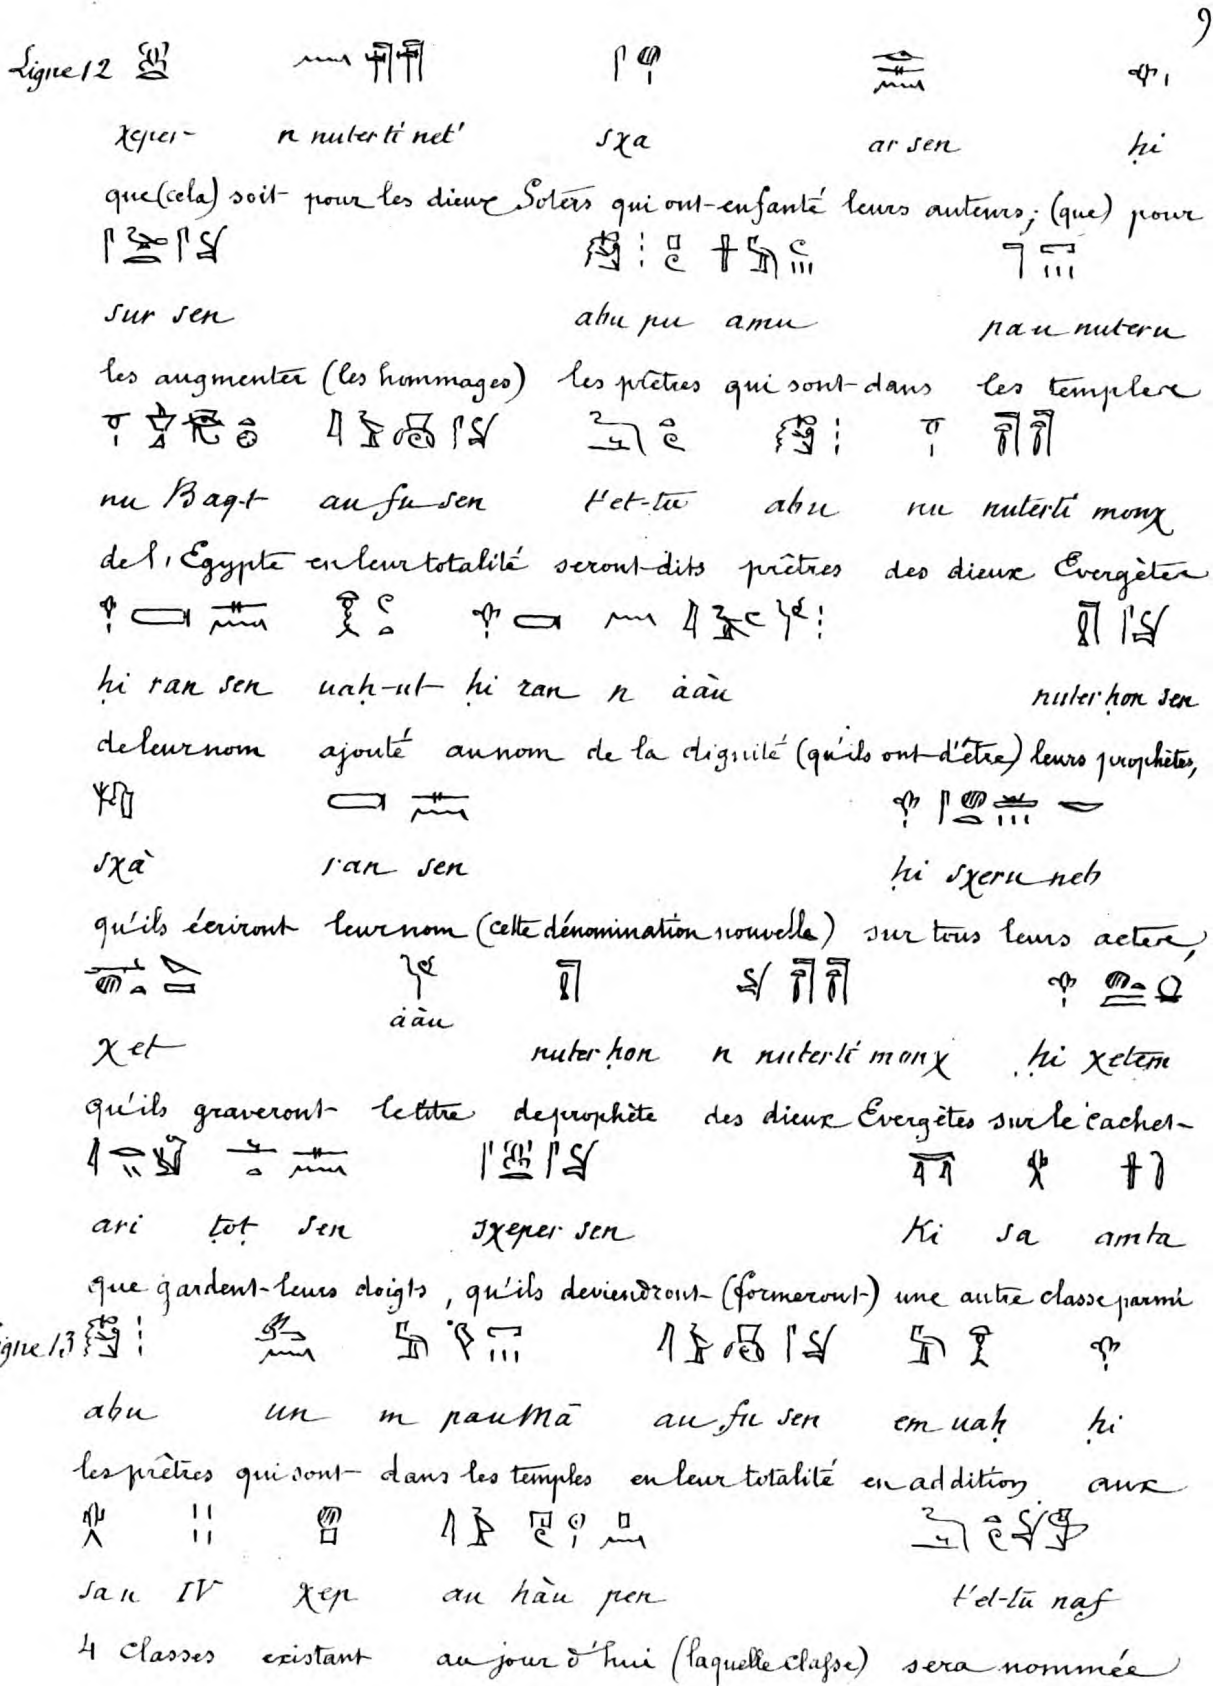 9
Ligne 12
χeper- n nuterti net' sχa ar sen ḥi
que (cela) soit pour les dieux Soters qui ont enfanté leurs auteurs; (que) pour
sur sen abu pu amu pau nuteru
les augmenter (les hommages) les prêtres qui sont dans les temples
nu Baq-t au fu sen t'et-tu abu nu nuterti monχ
de l'Egypte en leur totalité seront dits prêtres des dieux Evergètes
ḥi ran sen uaḥ-ut ḥi ran n ȧȧu nuter ḥon sen
de leur nom ajouté au nom de la dignité (qu'ils ont d'être) leurs prophètes,
sχà ran sen ḥi sχeru neb
qu'ils écriront leur nom (cette dénomination nouvelle) sur tous leurs actes,
χet ȧȧu nuter ḥon n nuterti monχ ḥi χetem
qu'ils graveront le titre de prophète des dieux Evergètes sur le cachet
ari ṭoṭ sen sχeper sen Ki sa amta
que gardent leurs doigts, qu'ils deviendront (formeront) une autre classe parmi
Ligne 13
abu un m pau Mā au fu sen em uaḥ ḥi
les prêtres qui sont dans les temples en leur totalité en addition aux
sau IV χep au hàu pen t'et-tū naf
4 Classes existant au jour d'hui (laquelle classe) sera nommée